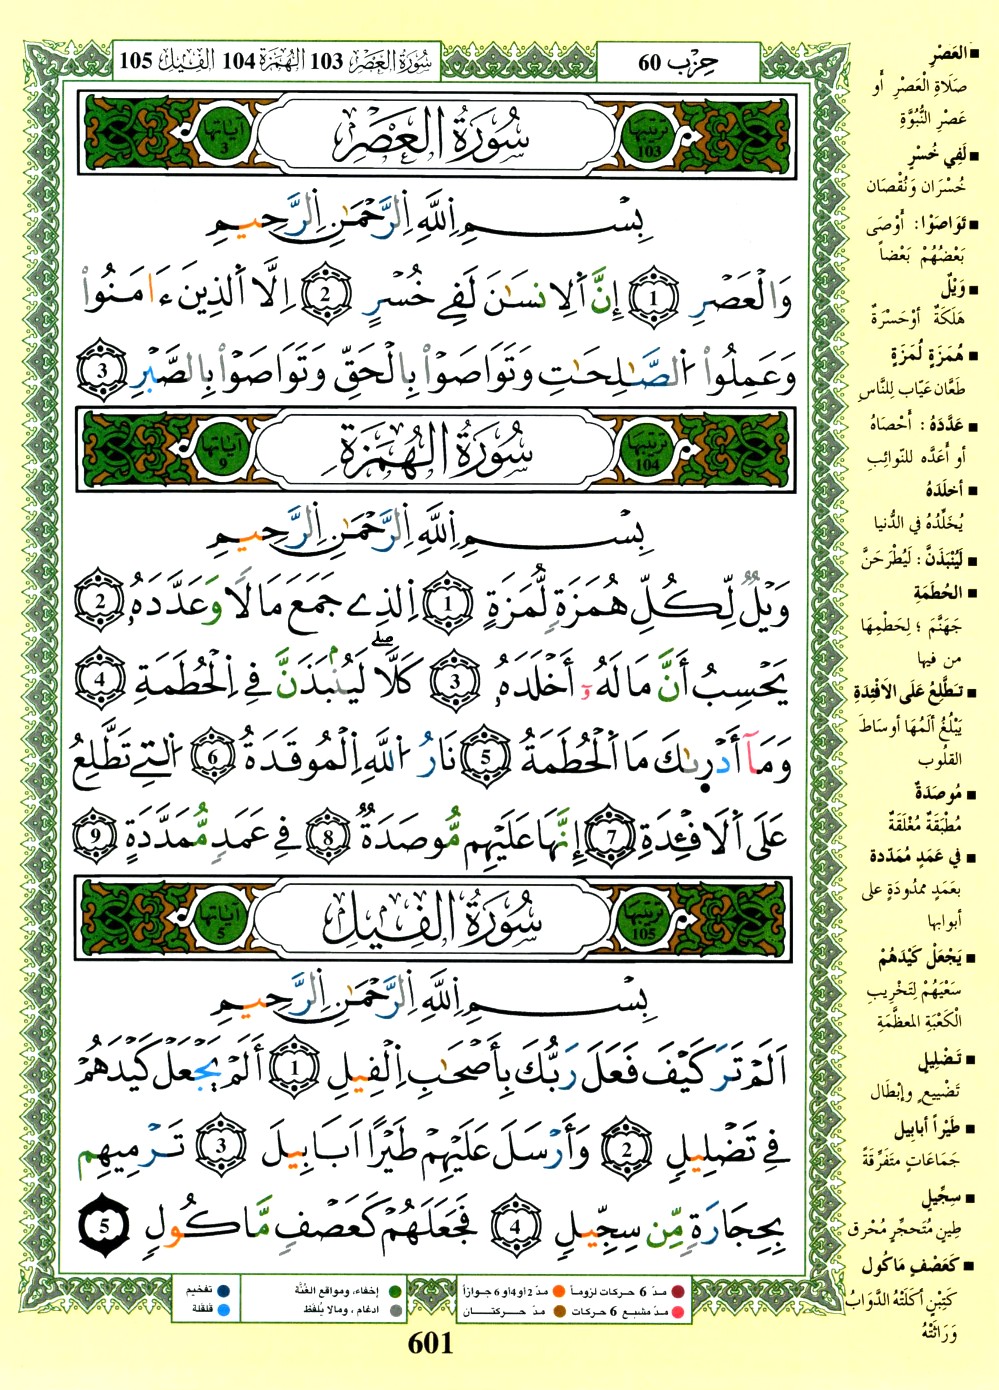 سُورَةُ العَصْر 103 الهُمَزَة 104 الفِيل 105
حِزْب 60
آياتها 3
سُورَةُ العَصْر
ترتيبها 103
بِسْمِ اِللَّهِ اِلرَّحْمَٰنِ اِلرَّحِيمِ
وَالْعَصْرِ 1 إِنَّ اَلِانسَٰنَ لَفِے خُسْرٍ 2 اِلَّا اَلذِينَ ءَامَنُواْ
وَعَمِلُواْ اُلصَّٰلِحَٰتِ وَتَوَاصَوْاْ بِالْحَقِّ وَتَوَاصَوْاْ بِالصَّبْرِ 3
آياتها 9
سُورَةُ الهُمَزَةِ
ترتيبها 104
بِسْمِ اِللَّهِ اِلرَّحْمَٰنِ اِلرَّحِيمِ
وَيْلٌ لِّكُلِّ هُمَزَةٍ لُّمَزَةٍ 1 اِلذِے جَمَعَ مَالًا وَعَدَّدَهُۥ 2
يَحْسِبُ أَنَّ مَالَهُۥٓ أَخْلَدَهُۥ 3 كَلَّاۖ لَيُنۢبَذَنَّ فِے اِلْحُطَمَةِ 4
وَمَآ أَدْر۪ىٰكَ مَا اَلْحُطَمَةُ 5 نَارُ اُللَّهِ اِلْمُوقَدَةُ 6 اُلتِے تَطَّلِعُ
عَلَى اَلَافْـِٕدَةِ 7 إِنَّهَا عَلَيْهِم مُّوصَدَةٌ 8 فِے عَمَدٍ مُّمَدَّدَةٍ 9
آياتها 5
سُورَةُ الفِيلِ
ترتيبها 105
بِسْمِ اِللَّهِ اِلرَّحْمَٰنِ اِلرَّحِيمِ
اَلَمْ تَرَ كَيْفَ فَعَلَ رَبُّكَ بِأَصْحَٰبِ اِلْفِيلِ 1 أَلَمْ يَجْعَلْ كَيْدَهُمْ
فِے تَضْلِيلٍ 2 وَأَرْسَلَ عَلَيْهِمْ طَيْرًا اَبَابِيلَ 3 تَرْمِيهِم
بِحِجَارَةٍ مِّن سِجِّيلٍ 4 فَجَعَلَهُمْ كَعَصْفٍ مَّاكُولٍ 5
■ العَصْرِ
صَلَاةِ الْعَصْرِ أَو
عَصْرِ النُّبُوَّةِ
■ لَفِي خُسْرٍ
خُسْرَان وَنُقْصَان
■ تَوَاصَوْا : أَوْصَى
بَعْضُهُمْ بَعْضاً
■ وَيْلٌ
هَلَكَةٌ أوْحَسْرَةٌ
■ هُمَزَةٍ لُمَزَةٍ
طَعَّان عَيَّاب لِلنَّاسِ
■ عَدَّدَهُ : أَحْصَاهُ
أو أَعَدَّه للنّوائِبِ
■ أخلَدَهُ
يُخَلِّدُهُ في الدُّنيا
■ لَيُنْبَذَنَّ : لَيُطْرَحَنَّ
■ الحُطَمَةِ
جَهَنَّمَ ؛ لِحَطْمِهَا
من فيها
■ تَطَّلِعُ عَلَى الاَفْئِدَةِ
يَبْلُغُ ألَمُهَا أوسَاطَ
القلُوب
■ مُوصَدَةٌ
مُطْبَقَةٌ مُغْلَقَةٌ
■ في عَمَدٍ مُمَدّدة
بعَمَدٍ ممدُودَةٍ على
أبوابها
■ يَجْعَلْ كَيْدَهُمْ
سَعْيَهُمْ لِتَخْرِيب
الْكَعْبَةِ المعظَّمَةِ
■ تَضْلِيلٍ
تَضْييعٍ وإبْطَال
■ طَيْراً أبابيل
جَمَاعَاتٍ متَفَرِّقَةً
■ سِجِّيلٍ
طِينٍ مُتَحجِّرٍ مُحْرق
■ كَعَصْفٍ مَاكُول
كَتِبْنٍ أكَلَتْهُ الدَّوَابُّ
وَرَاثَتْهُ
مدّ 6 حركات لزوماً مدّ 2 أو 4 أو 6 جوازاً
مدّ مشبع 6 حركات مدّ حركتان
إخفاء، ومواقع الغُنَّة تفخيم
ادغام ، ومالا يُلفظ قلقلة
601